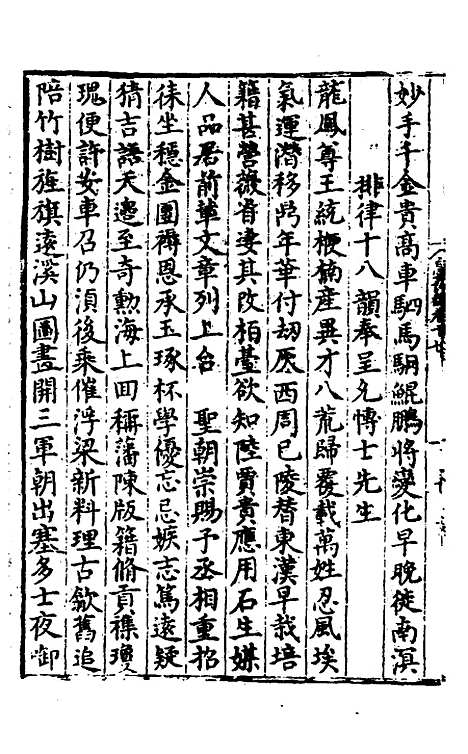 妙手千金貴高車駟馬駉鯤鵬將變化早晚徙南溟
排律十八韻奉呈允愽士先生
龍鳳尊王統楩楠産異才八荒歸覆載萬姓忍風埃
氣運潛移歩年華付劫灰西周已陵替東漢早栽培
籍甚營微眷凄其改栢臺欲知陸賈貴應用石生媒
人品居前軰文章列上台 聖朝崇賜予丞相重招
徠坐穩金團褥恩承玉琢杯學優忘忌嫉志篤遠疑
猜吉語天邊至奇勳海上回稱藩陳版籍脩貢襍瓊
瑰便許安車召仍湏後乗催浮梁新料理古歙舊追
陪竹樹旌旗遠溪山圖畫開三軍朝出塞多士夜御